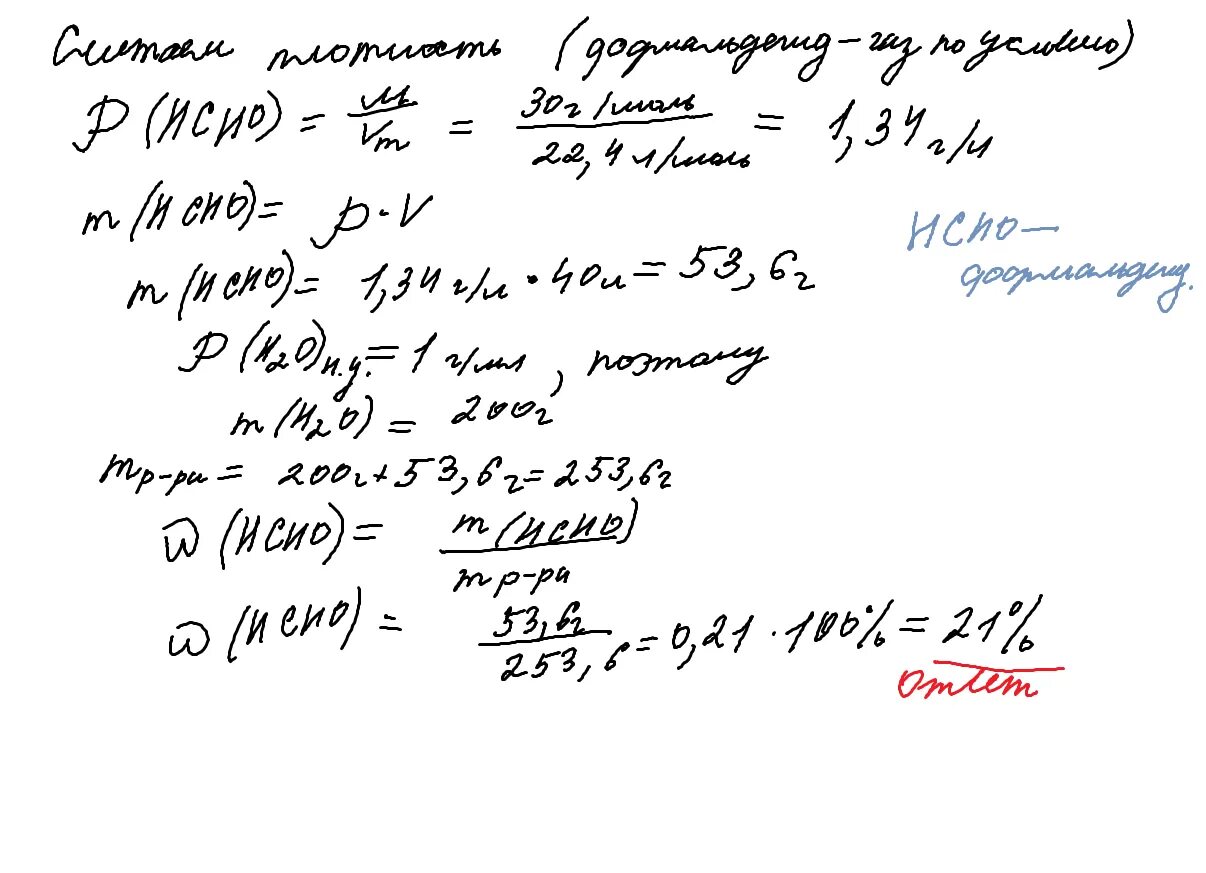 Считаем плотность (формальдегид – газ по условию)
ρ (HCHO) = M/Vm = 30 г/моль / 22,4 л/моль = 1,34 г/л
m (HCHO) = ρ · V
HCHO —
формальдегид.
m (HCHO) = 1,34 г/л · 40 л = 53,6 г
ρ (H2O)н.у. = 1 г/мл, поэтому
m (H2O) = 200 г
m р-ра = 200 г + 53,6 г = 253,6 г
ω (HCHO) = m (HCHO) / m р-ра
ω (HCHO) = 53,6 г / 253,6 = 0,21 · 100% = 21%
Ответ